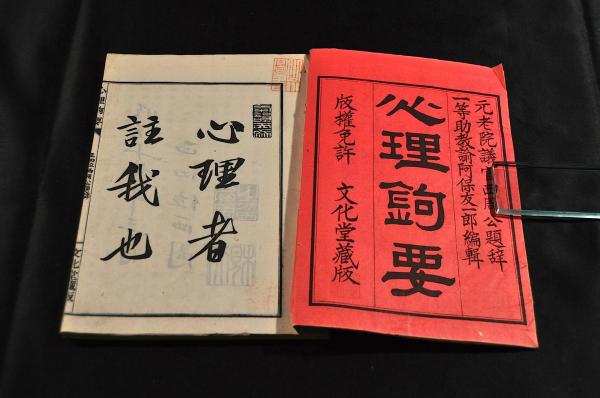 元老院議官西周公題辭
一等助教諭阿保友一郎編輯
心理鉤要
版權免許 文化堂藏版
心理者
註我也